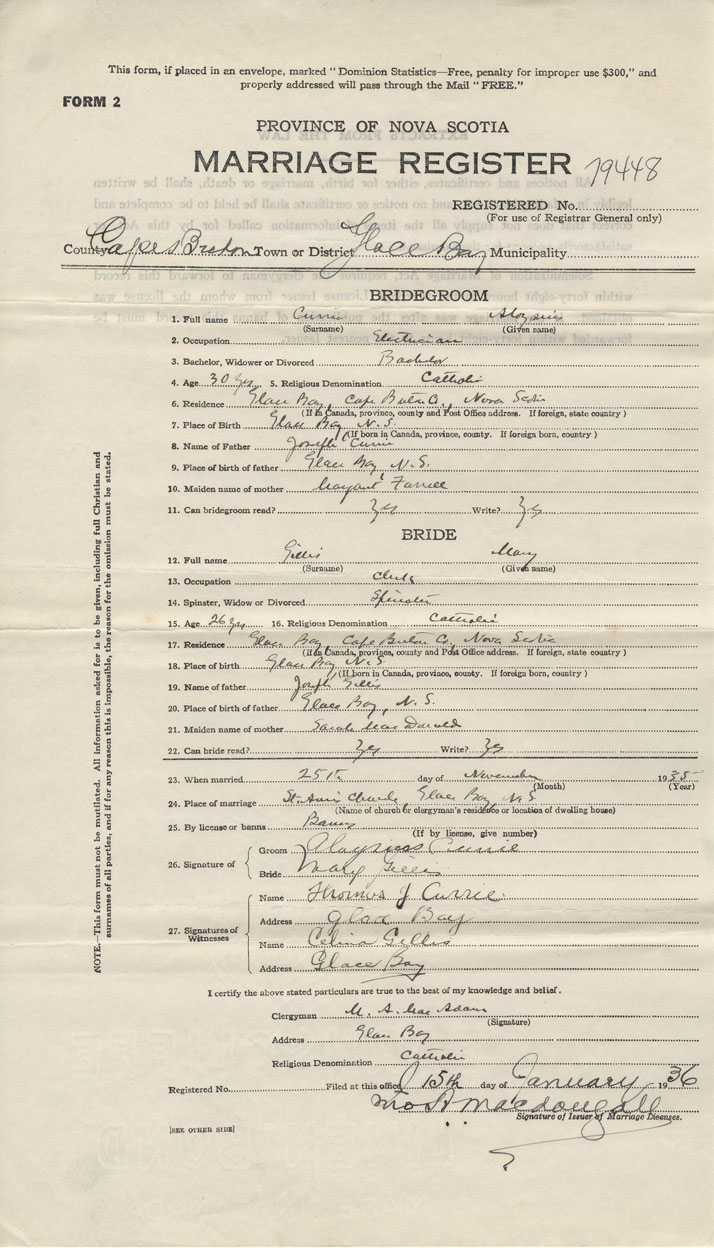 This form, if placed in an envelope, marked "Dominion Statistics—Free, penalty for improper use $300," and
properly addressed will pass through the Mail "FREE."
FORM 2
PROVINCE OF NOVA SCOTIA
MARRIAGE REGISTER 79448
REGISTERED No.
(For use of Registrar General only)
County Cape Breton Town or District Glace Bay Municipality
BRIDEGROOM
1. Full name Currie Aloysius
(Surname) (Given name)
2. Occupation Electrician
3. Bachelor, Widower or Divorced Bachelor
4. Age 30 yrs 5. Religious Denomination Catholic
6. Residence Glace Bay, Cape Breton Co., Nova Scotia
(If in Canada, province, county and Post Office address. If foreign, state country)
7. Place of Birth Glace Bay N.S.
(If born in Canada, province, county. If foreign born, country)
8. Name of Father Joseph Currie
9. Place of birth of father Glace Bay N.S.
10. Maiden name of mother Margaret Farrell
11. Can bridegroom read? Yes Write? Yes
BRIDE
12. Full name Gillis Mary
(Surname) (Given name)
13. Occupation Clerk
14. Spinster, Widow or Divorced Spinster
15. Age 26 yrs 16. Religious Denomination Catholic
17. Residence Glace Bay, Cape Breton Co., Nova Scotia
(If in Canada, province, county and Post Office address. If foreign, state country)
18. Place of birth Glace Bay N.S.
(If born in Canada, province, county. If foreign born, country)
19. Name of father Joseph Gillis
20. Place of birth of father Glace Bay, N.S.
21. Maiden name of mother Sarah MacDonald
22. Can bride read? Yes Write? Yes
23. When married 25th day of November 1935
(Month) (Year)
24. Place of marriage St. Ann's Church, Glace Bay, N.S.
(Name of church or clergyman's residence or location of dwelling house)
25. By license or banns Banns
(If by license, give number)
26. Signature of Groom Aloysius Currie
Bride Mary Gillis
27. Signatures of Witnesses Name Thomas J Currie
Address Glace Bay
Name Celina Gillis
Address Glace Bay
I certify the above stated particulars are true to the best of my knowledge and belief.
Clergyman M. A. MacAdam
(Signature)
Address Glace Bay
Religious Denomination Catholic
Registered No. Filed at this office 15th day of January, 1936
A MacDougall
Signature of Issuer of Marriage Licenses.
[SEE OTHER SIDE]
NOTE.—This form must not be mutilated. All information asked for is to be given, including full Christian and
surnames of all parties, and if for any reason this is impossible, the reason for the omission must be stated.